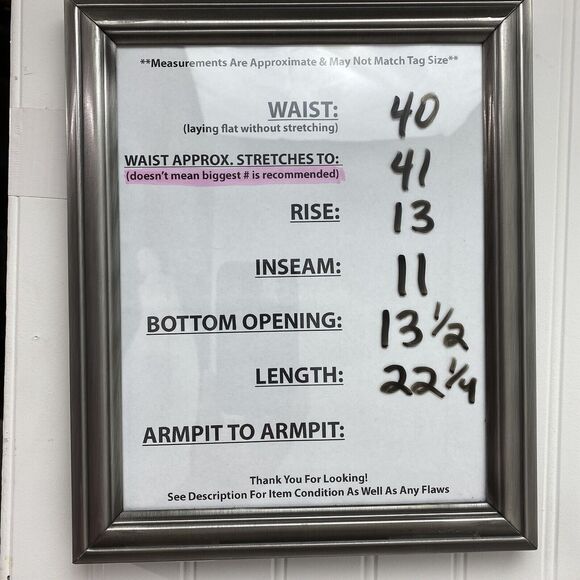 **Measurements Are Approximate & May Not Match Tag Size**
WAIST: 40
(laying flat without stretching)
WAIST APPROX. STRETCHES TO: 41
(doesn't mean biggest # is recommended)
RISE: 13
INSEAM: 11
BOTTOM OPENING: 13 1/2
LENGTH: 22 1/4
ARMPIT TO ARMPIT:
Thank You For Looking!
See Description For Item Condition As Well As Any Flaws